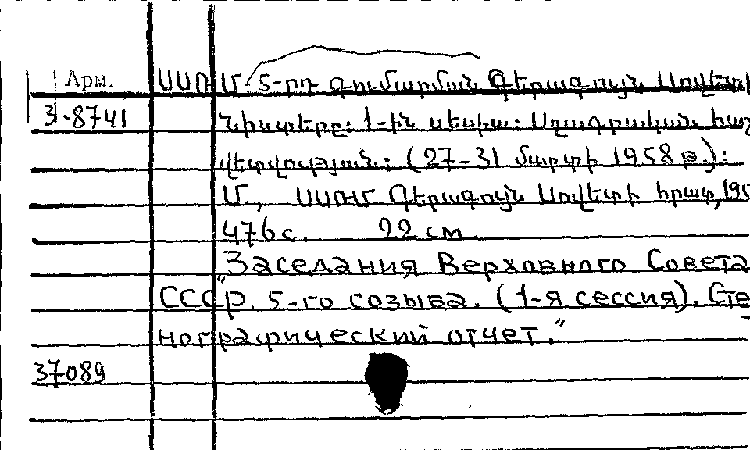 Арм. ՍՍՌՄ. 5-րդ գումարման Գերագույն Սովետի
3-8741 Նիստերը: 1-ին սեսիա: Սղագրական հաշ
վետվություն: (27-31 մարտի 1958 թ.):
Մ., ՍՍՌՄ Գերագույն Սովետի հրատ, 195
476 с. 22 см
"Заседания Верховного Совета
СССР. 5-го созыва. (1-я сессия). Сте
нографический отчет."
37089